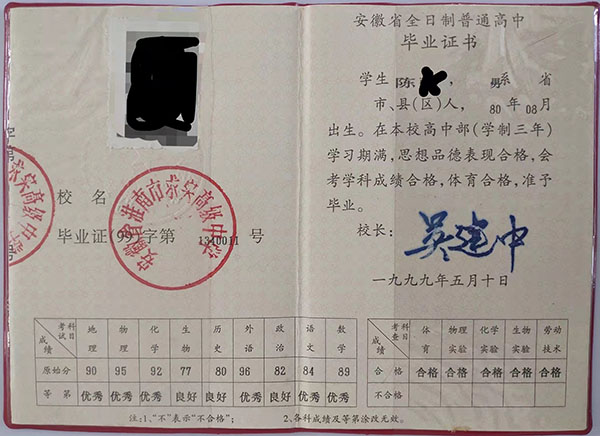 校 名
毕业证(99)字第 1310011 号
安徽省淮南市 高级中学
高级中
字第
号
科目 考试 成绩 地理 物理 化学 生物 历史 外语 政治 语文 数学
原始分 90 95 92 77 80 96 82 84 89
等 第 优秀 优秀 优秀 良好 良好 优秀 良好 优秀 优秀
注:1、“不”表示“不合格”;
安徽省全日制普通高中
毕业证书
学生 陈 , 男 系 省
市、县(区)人, 80 年 08 月
出生。在本校高中部(学制三年)
学习期满,思想品德表现合格,会
考学科成绩合格,体育合格,准予
毕业。
校长: 吴建中
一九九九年五月十日
科目 考查 成绩 体育 物理实验 化学实验 生物实验 劳动技术
合 格 合格 合格 合格 合格 合格
不合格
2、各科成绩及等第涂改无效。